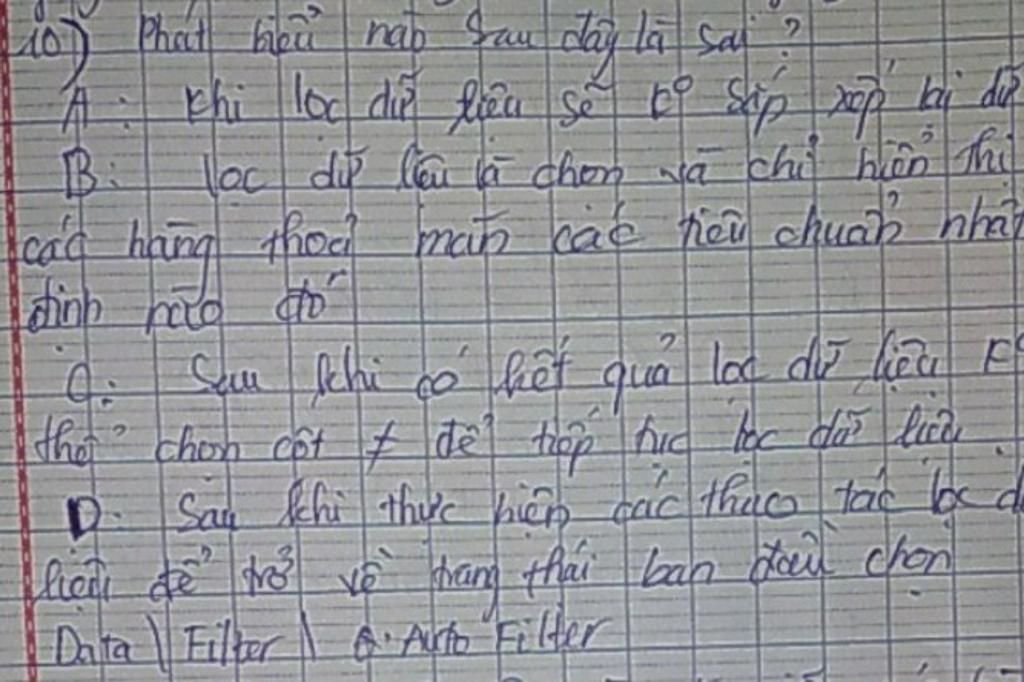 10) Phát biểu nào sau đây là sai ?
A: Khi lọc dữ liệu sẽ k° sắp xếp lại dữ
B: lọc dữ liệu là chọn và chỉ hiển thị
các hàng thoả mãn các tiêu chuẩn nhất
định nào đó
C: Sau khi có kết quả lọc dữ liệu k°
thể chọn cột ≠ để tiếp tục lọc dữ liệu.
D. Sau khi thực hiện các thao tác lọc d
liệu để trở về trạng thái ban đầu chọn
Data \ Filter \ Auto Filter